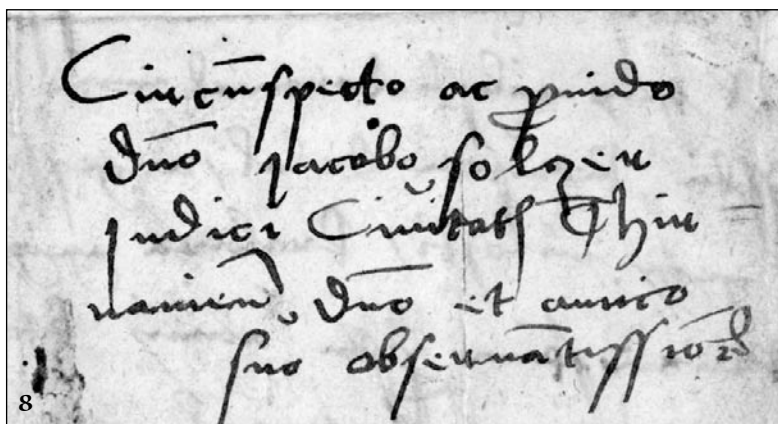 Circu̅specto ac p̲uido
dn̅o Jacobo Solczer
Judici Ciuitatꝭ Thir=
nauien̅ dn̅o et amico
suo obseruãtissio̅
8